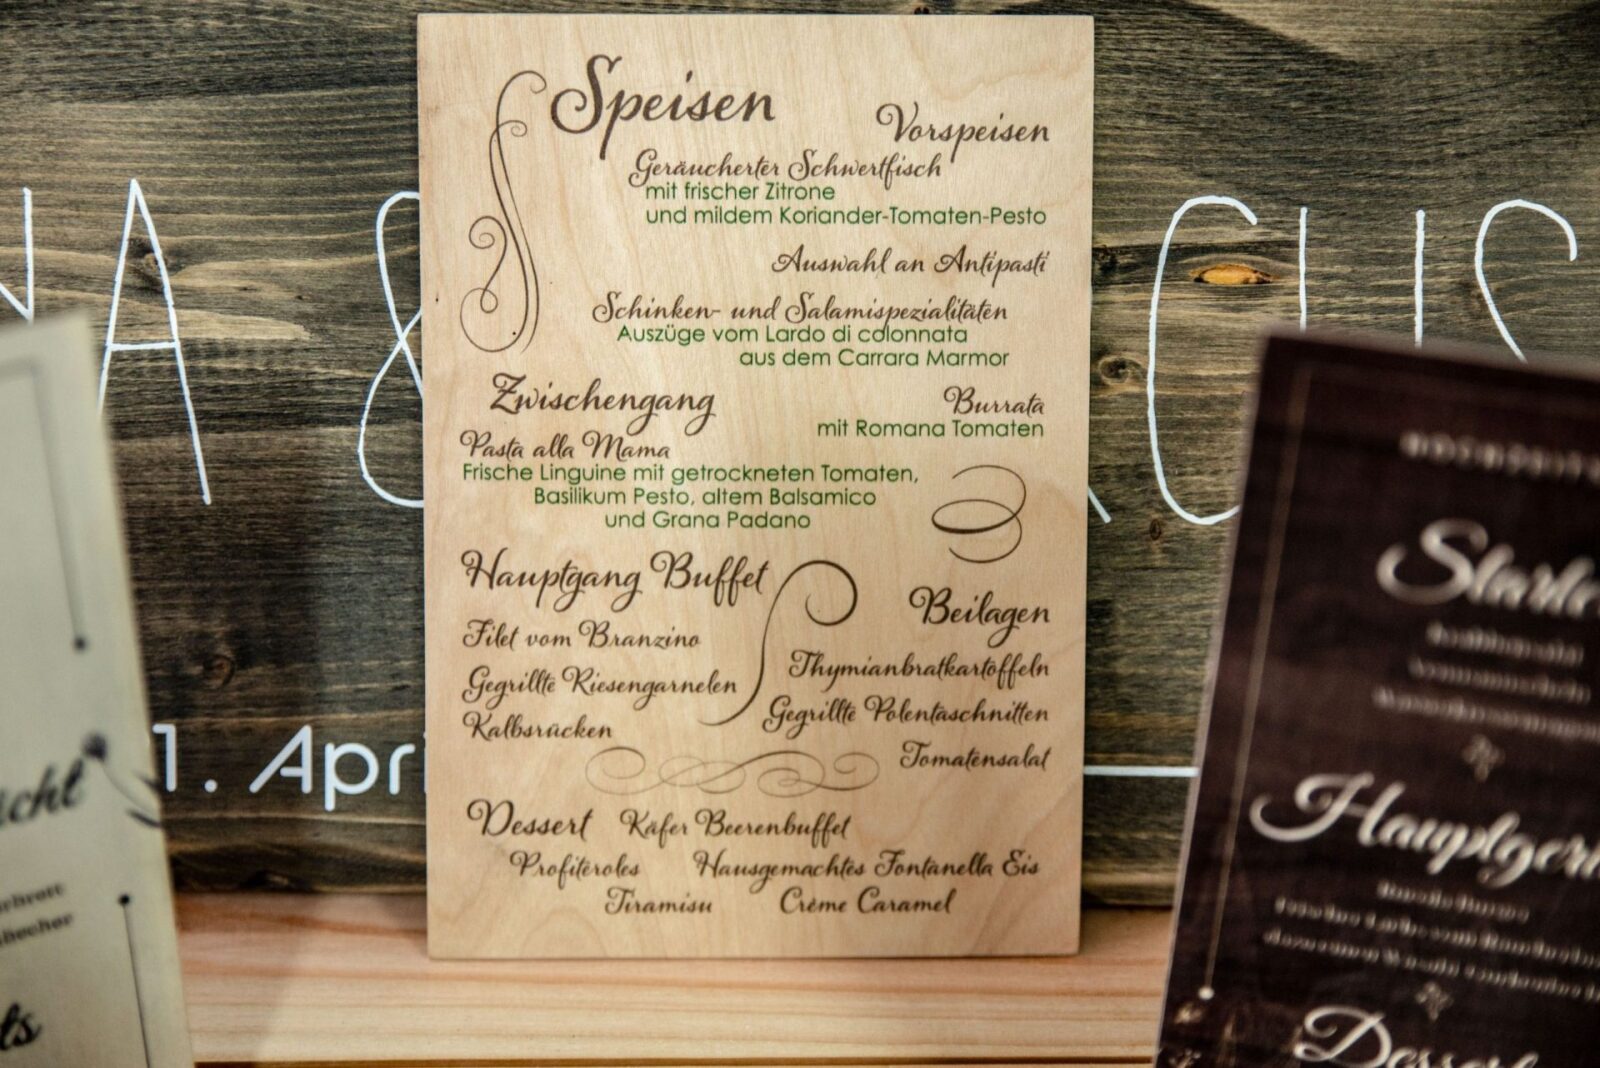 Speisen
Vorspeisen
Geräucherter Schwertfisch
mit frischer Zitrone
und mildem Koriander-Tomaten-Pesto
Auswahl an Antipasti
Schinken- und Salamispezialitäten
Auszüge vom Lardo di colonnata
aus dem Carrara Marmor
Burrata
mit Romana Tomaten
Zwischengang
Pasta alla Mama
Frische Linguine mit getrockneten Tomaten,
Basilikum Pesto, altem Balsamico
und Grana Padano
Hauptgang Buffet
Filet vom Branzino
Gegrillte Riesengarnelen
Kalbsrücken
Beilagen
Thymianbratkartoffeln
Gegrillte Polentaschnitten
Tomatensalat
Dessert Käfer Beerenbuffet
Profiteroles Hausgemachtes Fontanella Eis
Tiramisu Crème Caramel
NA &
1. Apr